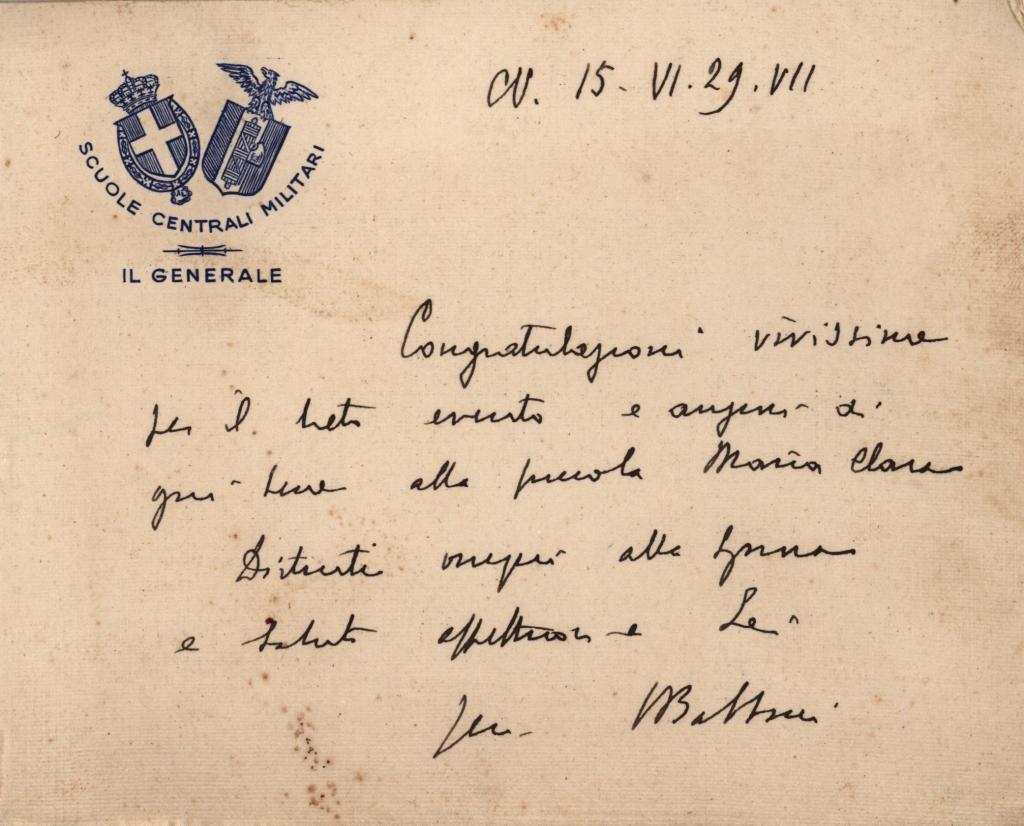 SCUOLE CENTRALI MILITARI
IL GENERALE
CV. 15-VI.29.VII
Congratulazioni vivissime
per il lieto evento e auguri di
ogni bene alla piccola Maria Clara
Distinti ossequi alla Signora
e saluti affettuosi a Lei
Gen.